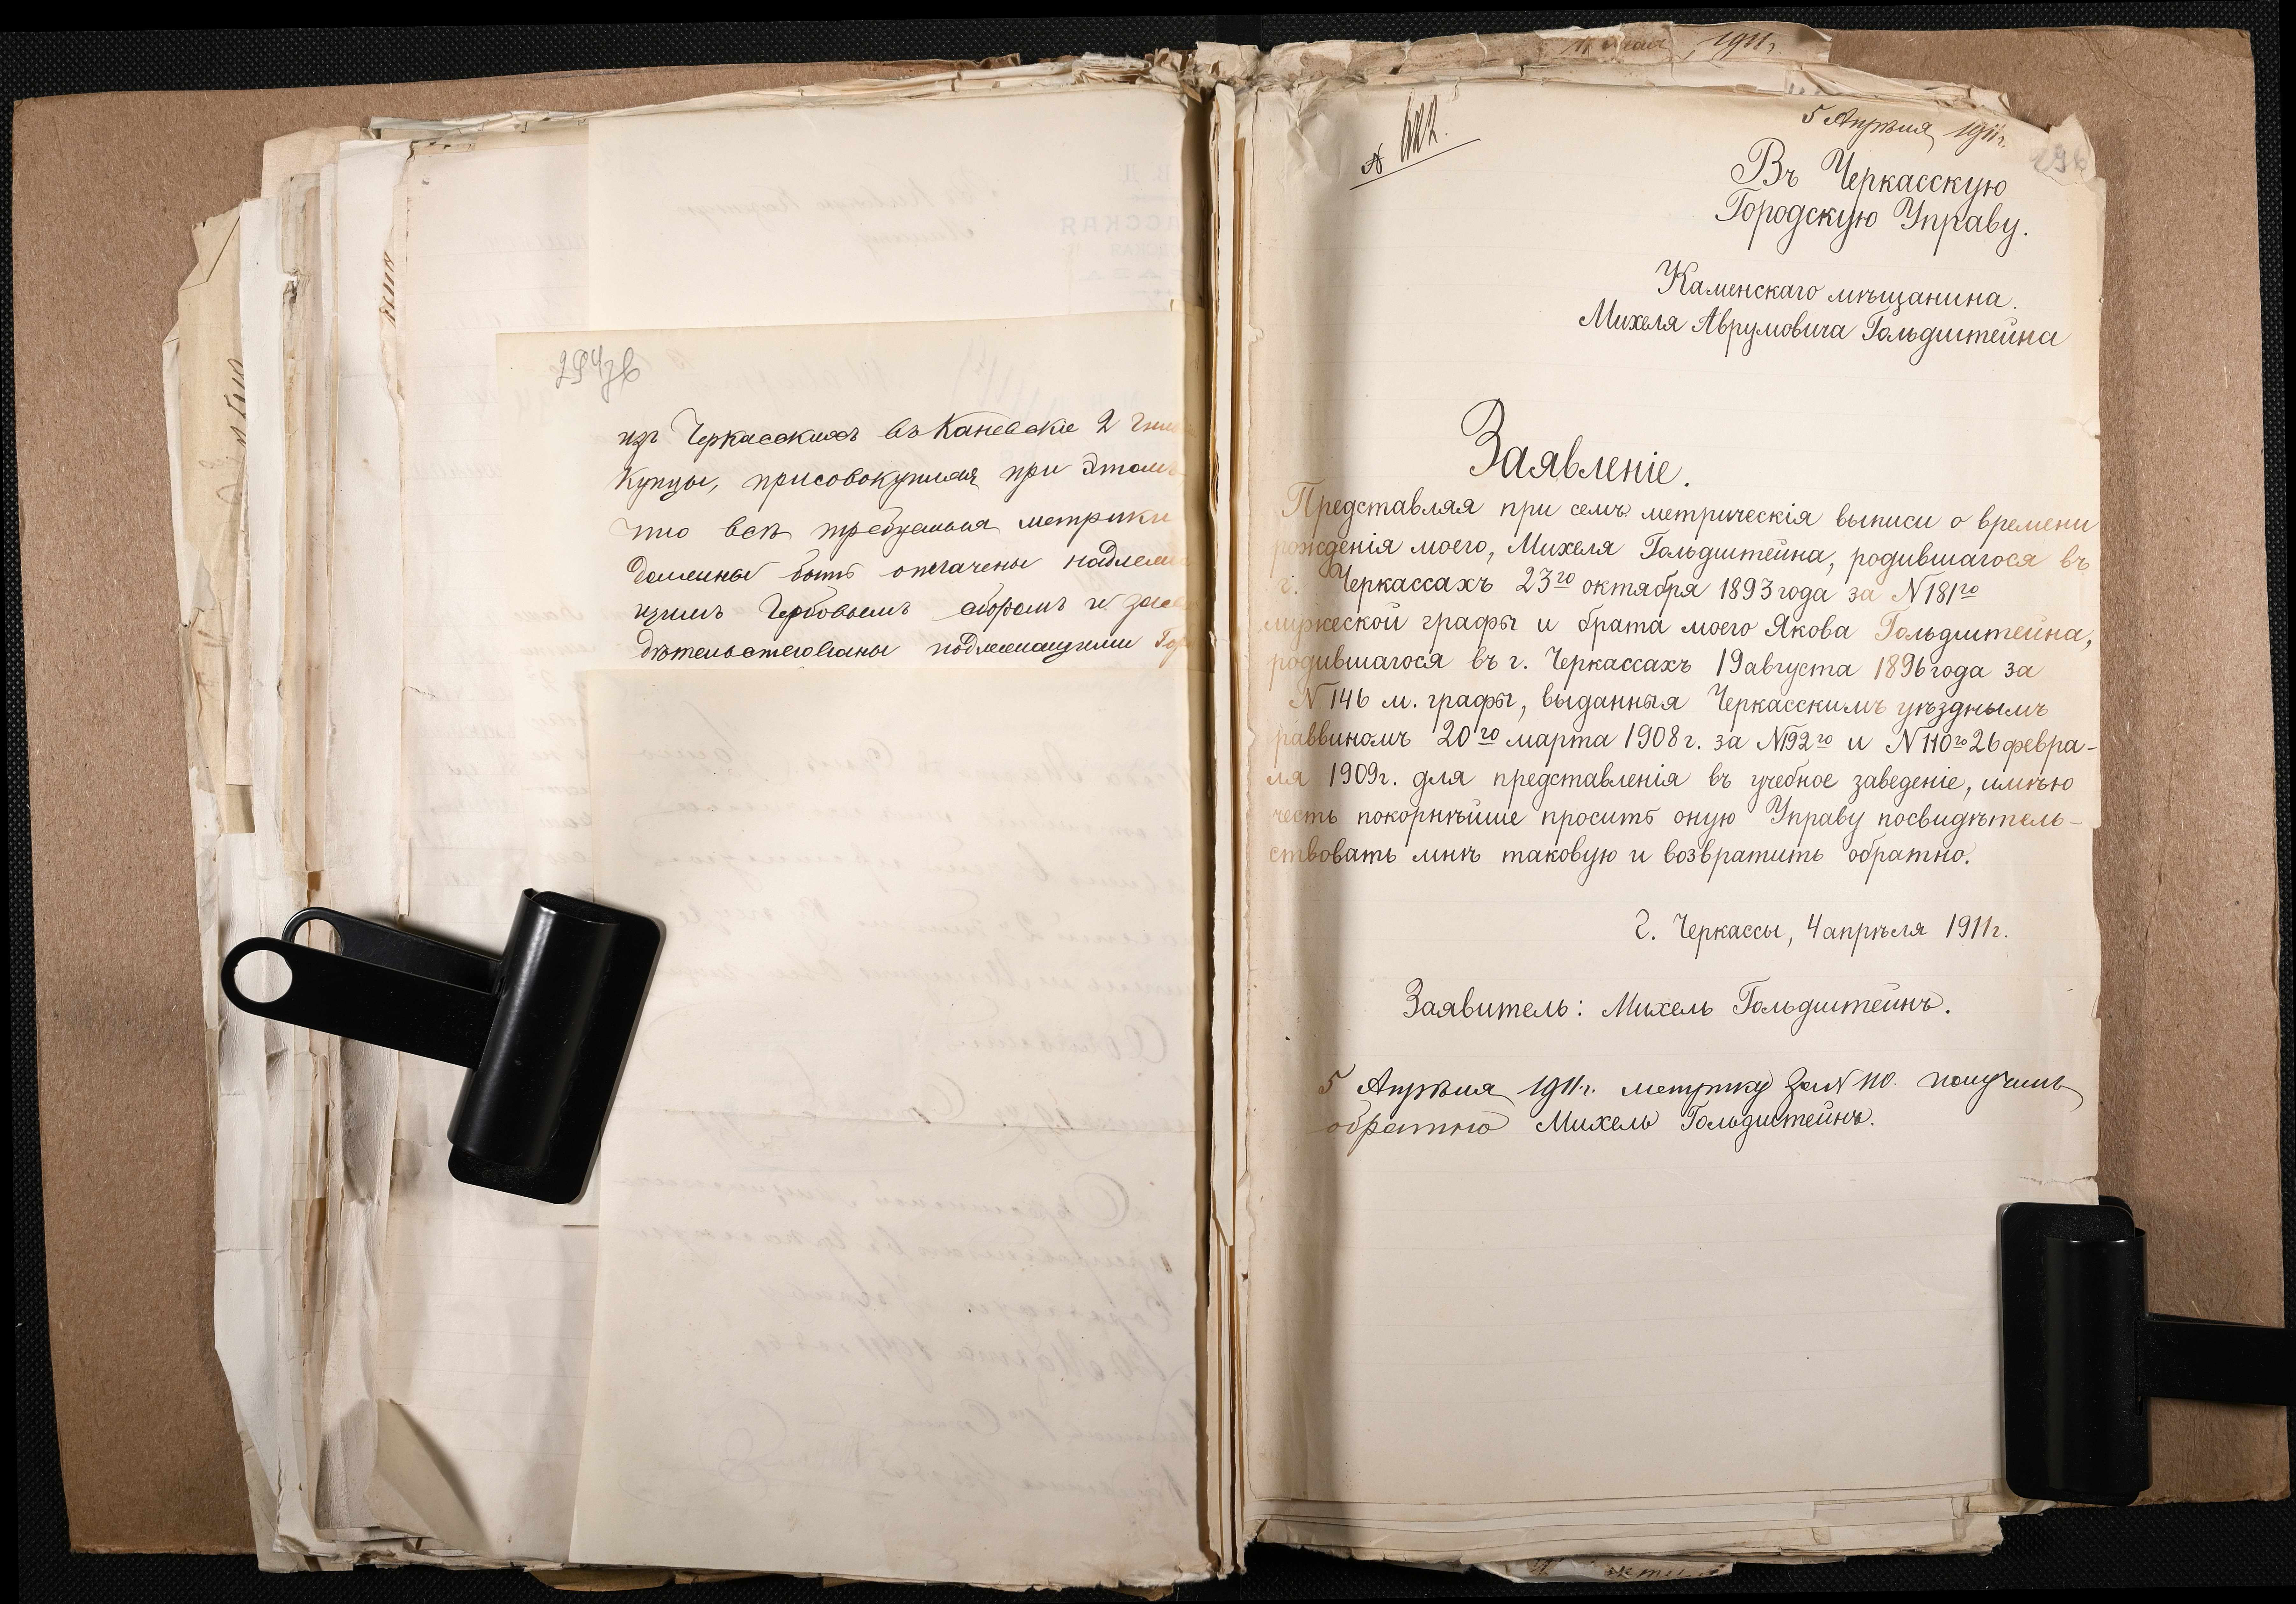 изъ Черкасскихъ въ Каневскіе 2
Купцы, присовокупляя при этомъ
что всѣ требуемыя метрики
должны быть оплачены надлежа
щимъ Гербовымъ сборомъ и
дѣтельствованы подлежащими
5 Апрѣля 1911г.
Въ Черкасскую
Городскую Управу.
Каменскаго мѣщанина
Михеля Аврумовича Гольдштейна
Заявленіе.
Представляя при семъ метрическія выписи о времени
рожденія моего, Михеля Гольдштейна, родившагося въ
г. Черкассахъ 23го октября 1893 года за N181го
мужеской графы и брата моего Якова Гольдштейна,
родившагося въ г. Черкассахъ 19 августа 1896 года за
N 146 м. графы, выданныя Черкасскимъ уѣзднымъ
раввиномъ 20го марта 1908г. за N192го и N110го 26 февра-
ля 1909г. для представленія въ учебное заведеніе, имѣю
честь покорнѣйше просить оную Управу посвидѣтель-
ствовать мнѣ таковую и возвратить обратно.
г. Черкассы, 4 апрѣля 1911г.
Заявитель: Михель Гольдштейнъ.
5 Апрѣля 1911г. метрику за N 110. получилъ
обратно Михель Гольдштейнъ.